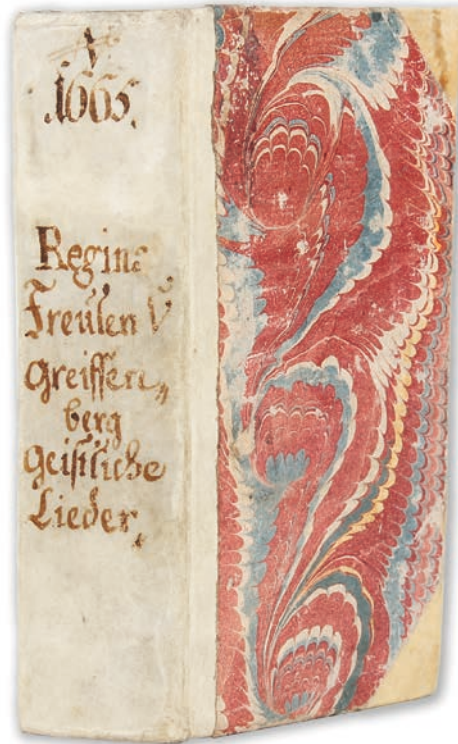 1665.
Regina
Freülen V
Greiffen„
berg
Geistliche
Lieder.